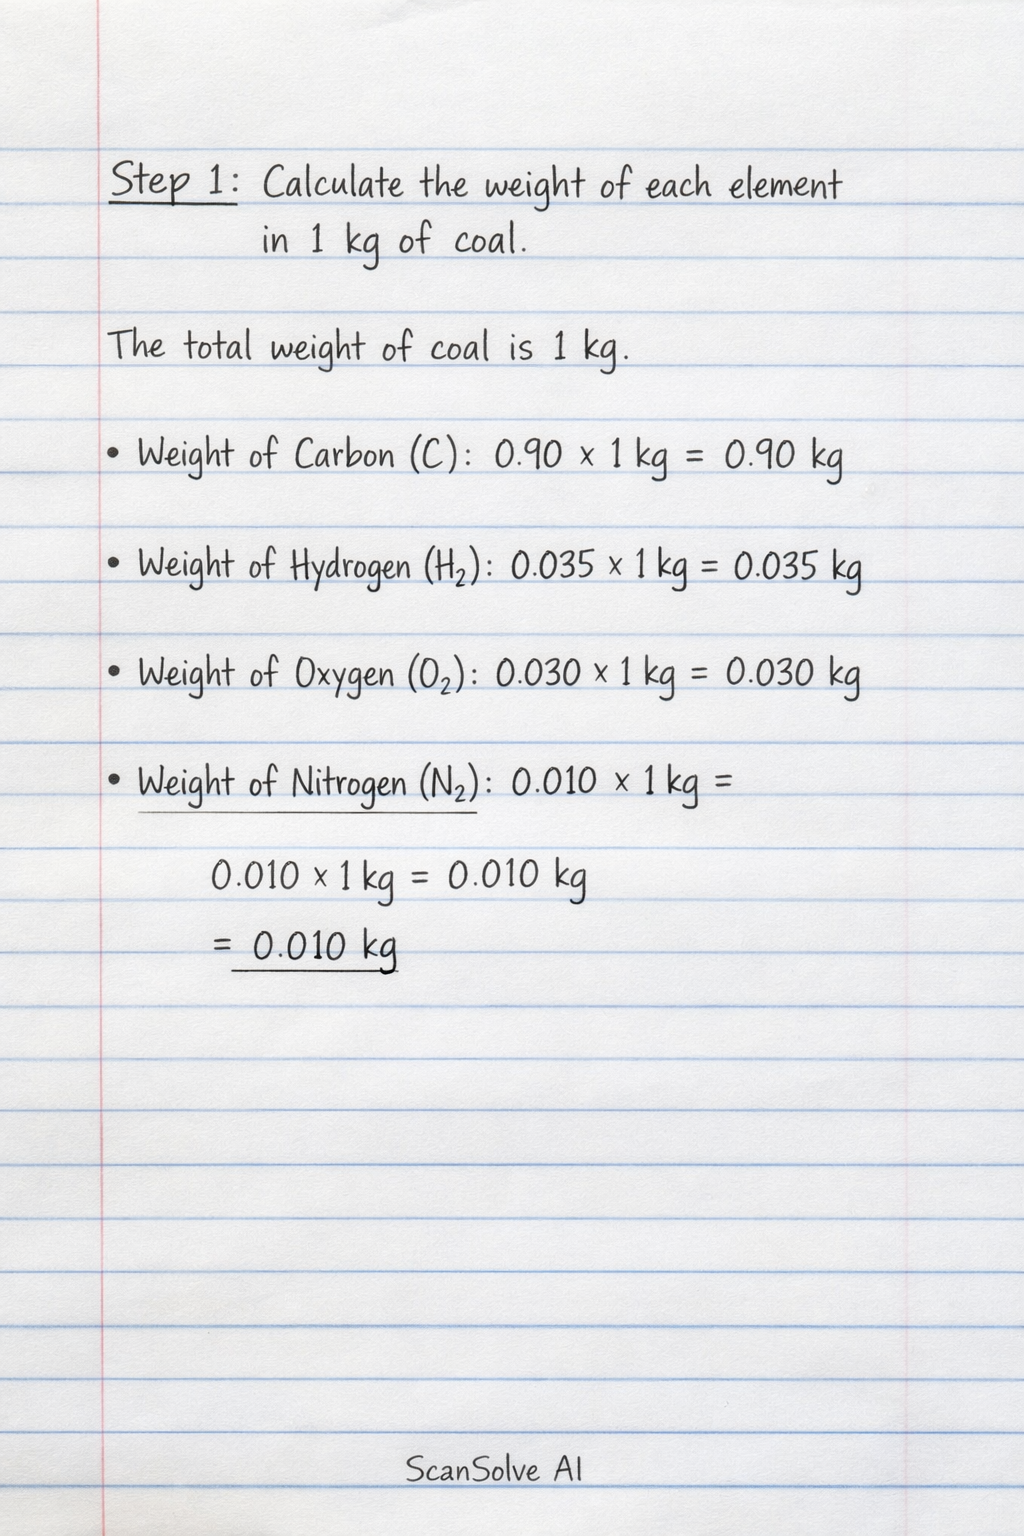 Step 1: Calculate the weight of each element
in 1 kg of coal.
The total weight of coal is 1 kg.
• Weight of Carbon (C): 0.90 × 1 kg = 0.90 kg
• Weight of Hydrogen (H₂): 0.035 × 1 kg = 0.035 kg
• Weight of Oxygen (O₂): 0.030 × 1 kg = 0.030 kg
• Weight of Nitrogen (N₂): 0.010 × 1 kg =
0.010 × 1 kg = 0.010 kg
= 0.010 kg
ScanSolve AI